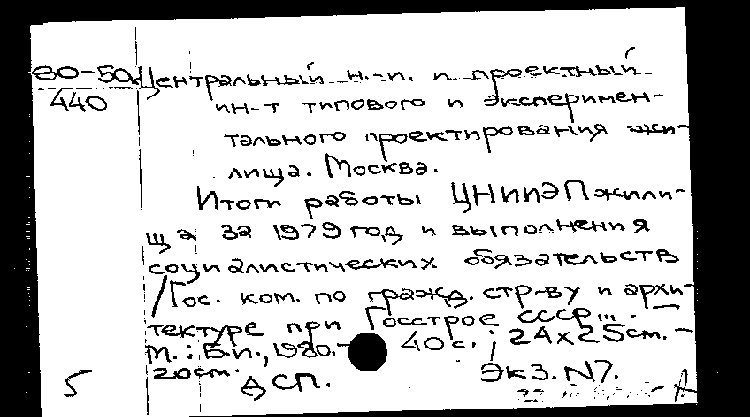 80-50
440
Центральный н.-и. и проектный
ин-т типового и эксперимен-
тального проектирования жи-
лища. Москва.
Итоги работы ЦНИИЭПжили-
ща за 1979 год и выполнения
социалистических обязательств
/Гос. ком. по гражд. стр-ву и архи-
тектуре при Госстрое СССР... . -
М.: Б.и., 1980. - 40 с.; 24х25см. -
20см.
ДСП. Экз. N7.
5
А